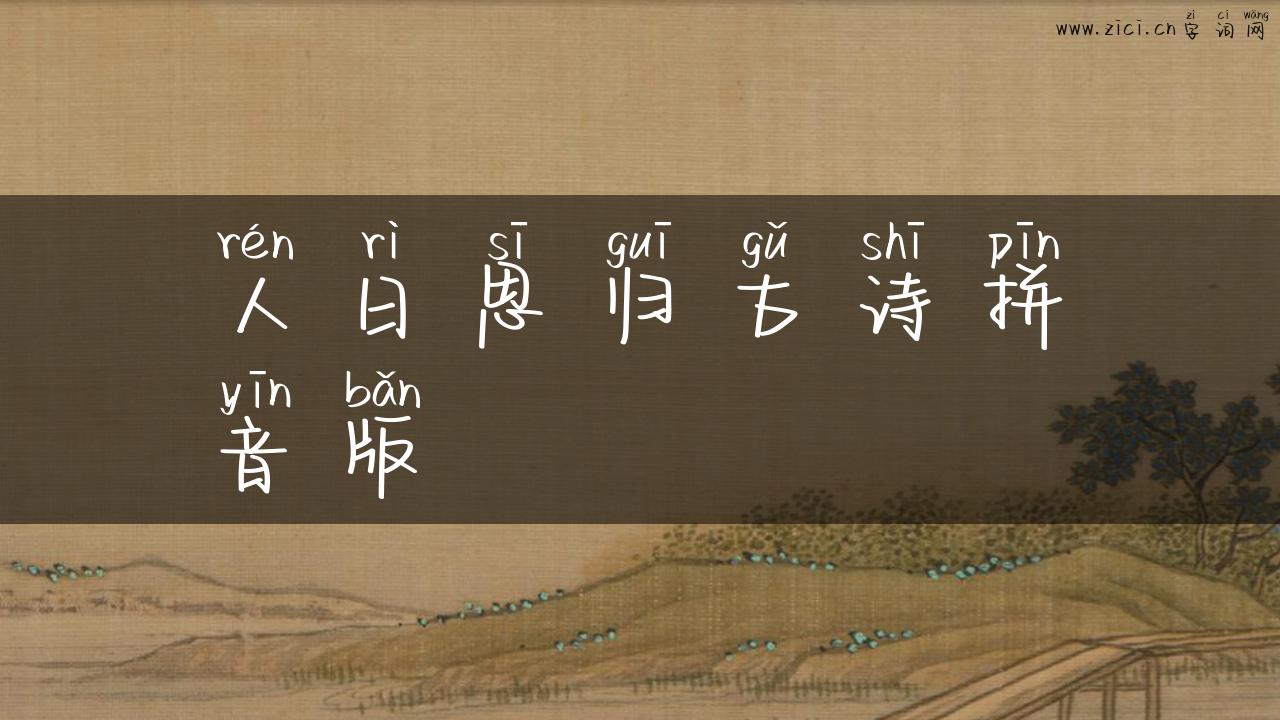 zì cí wǎng
www.zici.cn字词网
rén rì sī guī gǔ shī pīn
人日思归古诗拼
yīn bǎn
音版